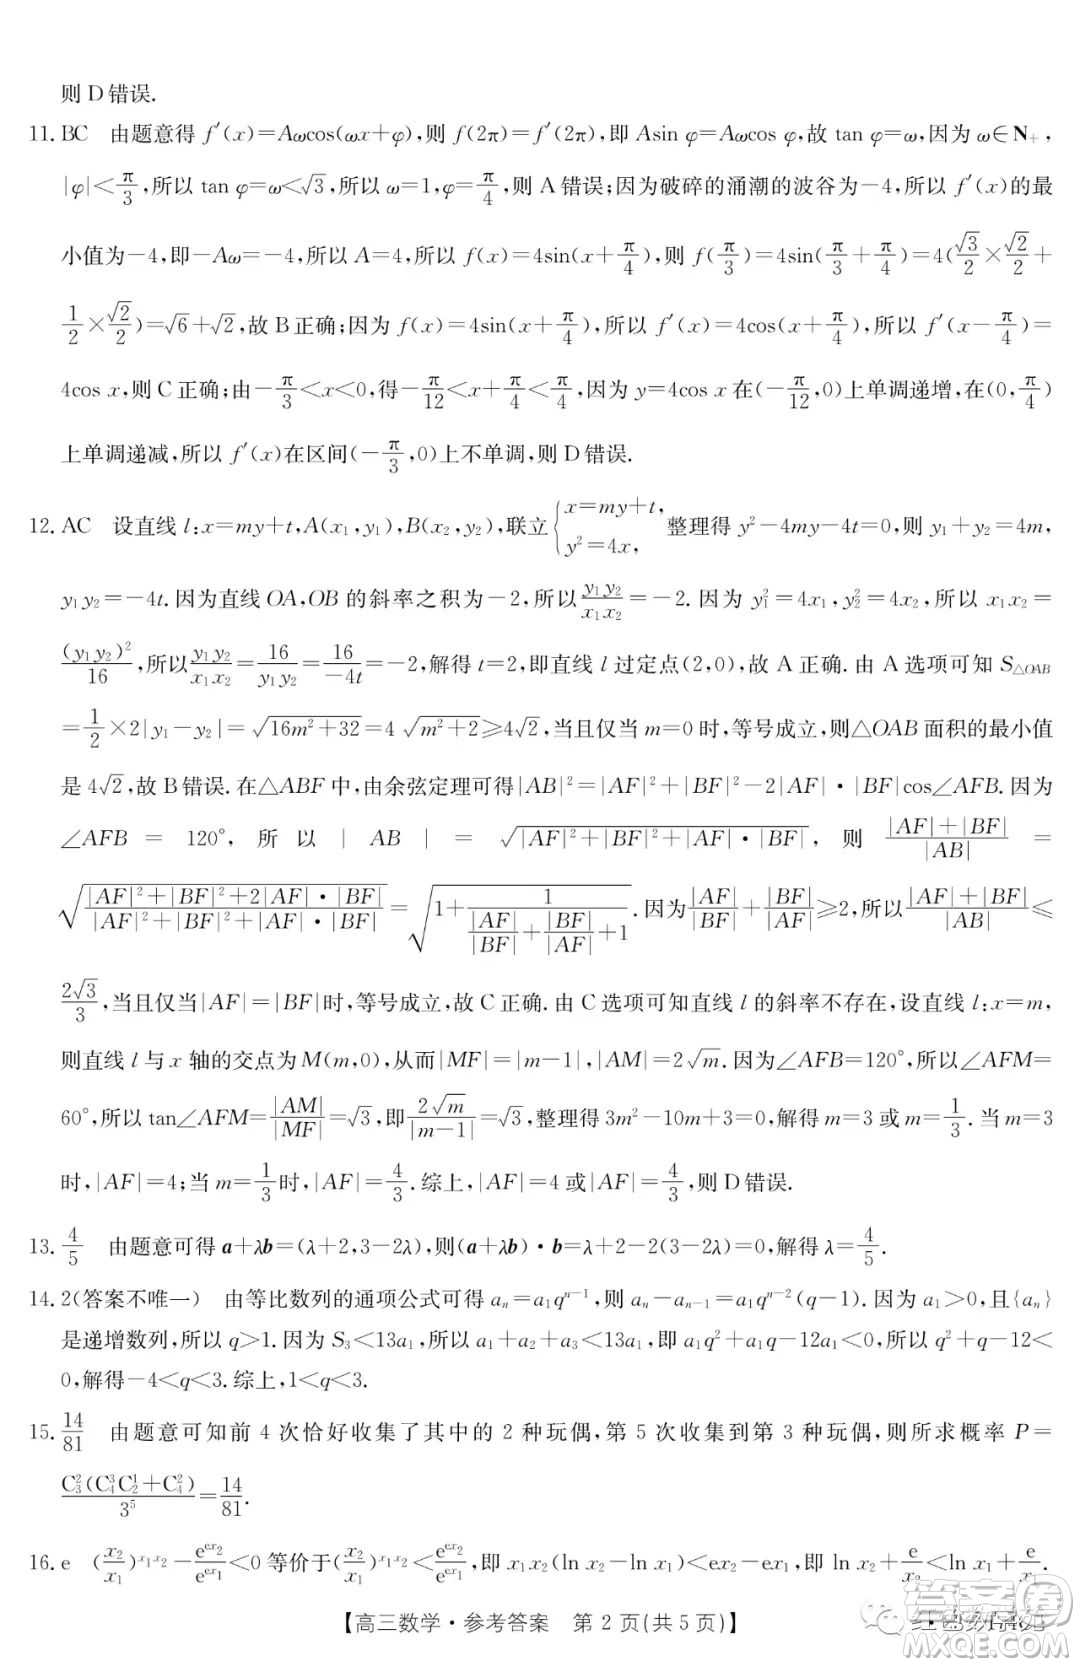 则 D 错误.
11. BC 由题意得 f′(x)=Aωcos(ωx+φ),则 f(2π)=f′(2π),即 Asin φ=Aωcos φ,故 tan φ=ω,因为 ω∈N₊,
|φ|<π/3,所以 tan φ=ω<√3,所以 ω=1,φ=π/4,则 A 错误;因为破碎的涌潮的波谷为-4,所以 f′(x)的最
小值为-4,即-Aω=-4,所以 A=4,所以 f(x)=4sin(x+π/4),则 f(π/3)=4sin(π/3+π/4)=4(√3/2×√2/2+
1/2×√2/2)=√6+√2,故 B 正确;因为 f(x)=4sin(x+π/4),所以 f′(x)=4cos(x+π/4),所以 f′(x-π/4)=
4cos x,则 C 正确;由-π/3<x<0,得-π/12<x+π/4<π/4,因为 y=4cos x 在(-π/12,0)上单调递增,在(0,π/4)
上单调递减,所以 f′(x)在区间(-π/3,0)上不单调,则 D 错误.
12. AC 设直线 l:x=my+t,A(x₁,y₁),B(x₂,y₂),联立{x=my+t, y²=4x, 整理得 y²-4my-4t=0,则 y₁+y₂=4m,
y₁y₂=-4t.因为直线 OA,OB 的斜率之积为-2,所以y₁y₂/x₁x₂=-2.因为 y₁²=4x₁,y₂²=4x₂,所以 x₁x₂=
(y₁y₂)²/16,所以y₁y₂/x₁x₂=16/y₁y₂=16/-4t=-2,解得 t=2,即直线 l 过定点(2,0),故 A 正确.由 A 选项可知 S△OAB
=1/2×2|y₁-y₂|=√(16m²+32)=4√(m²+2)≥4√2,当且仅当 m=0 时,等号成立,则△OAB 面积的最小值
是 4√2,故 B 错误.在△ABF 中,由余弦定理可得|AB|²=|AF|²+|BF|²-2|AF|·|BF|cos∠AFB.因为
∠AFB = 120°,所以 |AB| = √(|AF|²+|BF|²+|AF|·|BF|),则 (|AF|+|BF|)/|AB| =
√((|AF|²+|BF|²+2|AF|·|BF|)/(|AF|²+|BF|²+|AF|·|BF|))=√(1+1/(|AF|/|BF|+|BF|/|AF|+1)).因为|AF|/|BF|+|BF|/|AF|≥2,所以(|AF|+|BF|)/|AB|≤
2√3/3,当且仅当|AF|=|BF|时,等号成立,故 C 正确.由 C 选项可知直线 l 的斜率不存在,设直线 l:x=m,
则直线 l 与 x 轴的交点为 M(m,0),从而|MF|=|m-1|,|AM|=2√m.因为∠AFB=120°,所以∠AFM=
60°,所以 tan∠AFM=|AM|/|MF|=√3,即2√m/|m-1|=√3,整理得 3m²-10m+3=0,解得 m=3 或 m=1/3.当 m=3
时,|AF|=4;当 m=1/3时,|AF|=4/3.综上,|AF|=4 或|AF|=4/3,则 D 错误.
13. 4/5 由题意可得 a+λb=(λ+2,3-2λ),则(a+λb)·b=λ+2-2(3-2λ)=0,解得 λ=4/5.
14. 2(答案不唯一) 由等比数列的通项公式可得 aₙ=a₁qⁿ⁻¹,则 aₙ-aₙ₋₁=a₁qⁿ⁻²(q-1).因为 a₁>0,且{aₙ}
是递增数列,所以 q>1.因为 S₃<13a₁,所以 a₁+a₂+a₃<13a₁,即 a₁q²+a₁q-12a₁<0,所以 q²+q-12<
0,解得-4<q<3.综上,1<q<3.
15. 14/81 由题意可知前 4 次恰好收集了其中的 2 种玩偶,第 5 次收集到第 3 种玩偶,则所求概率 P=
C₃²(C₄³C₂¹+C₄²)/3⁵=14/81.
16. e (x₂/x₁)^(x₁x₂)-e^(ex₂)/e^(ex₁)<0 等价于(x₂/x₁)^(x₁x₂)<e^(ex₂)/e^(ex₁),即 x₁x₂(ln x₂-ln x₁)<ex₂-ex₁,即 ln x₂+e/x₂<ln x₁+e/x₁.
【高三数学·参考答案 第 2 页(共 5 页)】
答案圈
MXQE.COM